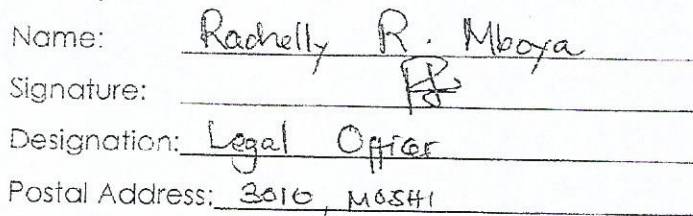 Name: Rachelly R. Mboya
Signature:
Designation: Legal Officer
Postal Address: 3010, MOSHI